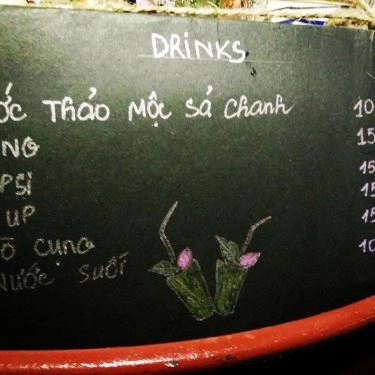 DRINKS
ỚC THẢO MỘC SẢ CHANH 10
NG 15
PSI 15
UP 15
Õ CUNG 15
NƯỚC SUỐI 10